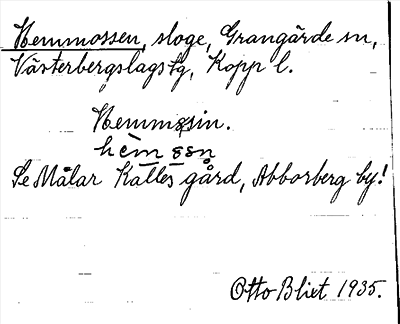 Hemmossen, sloge, Grangärde sn,
Västerbergslags fg, Kopp l.
Hemmosin.
Se Målar Kalles gård, Abborberg by!
Otto Blixt 1935.